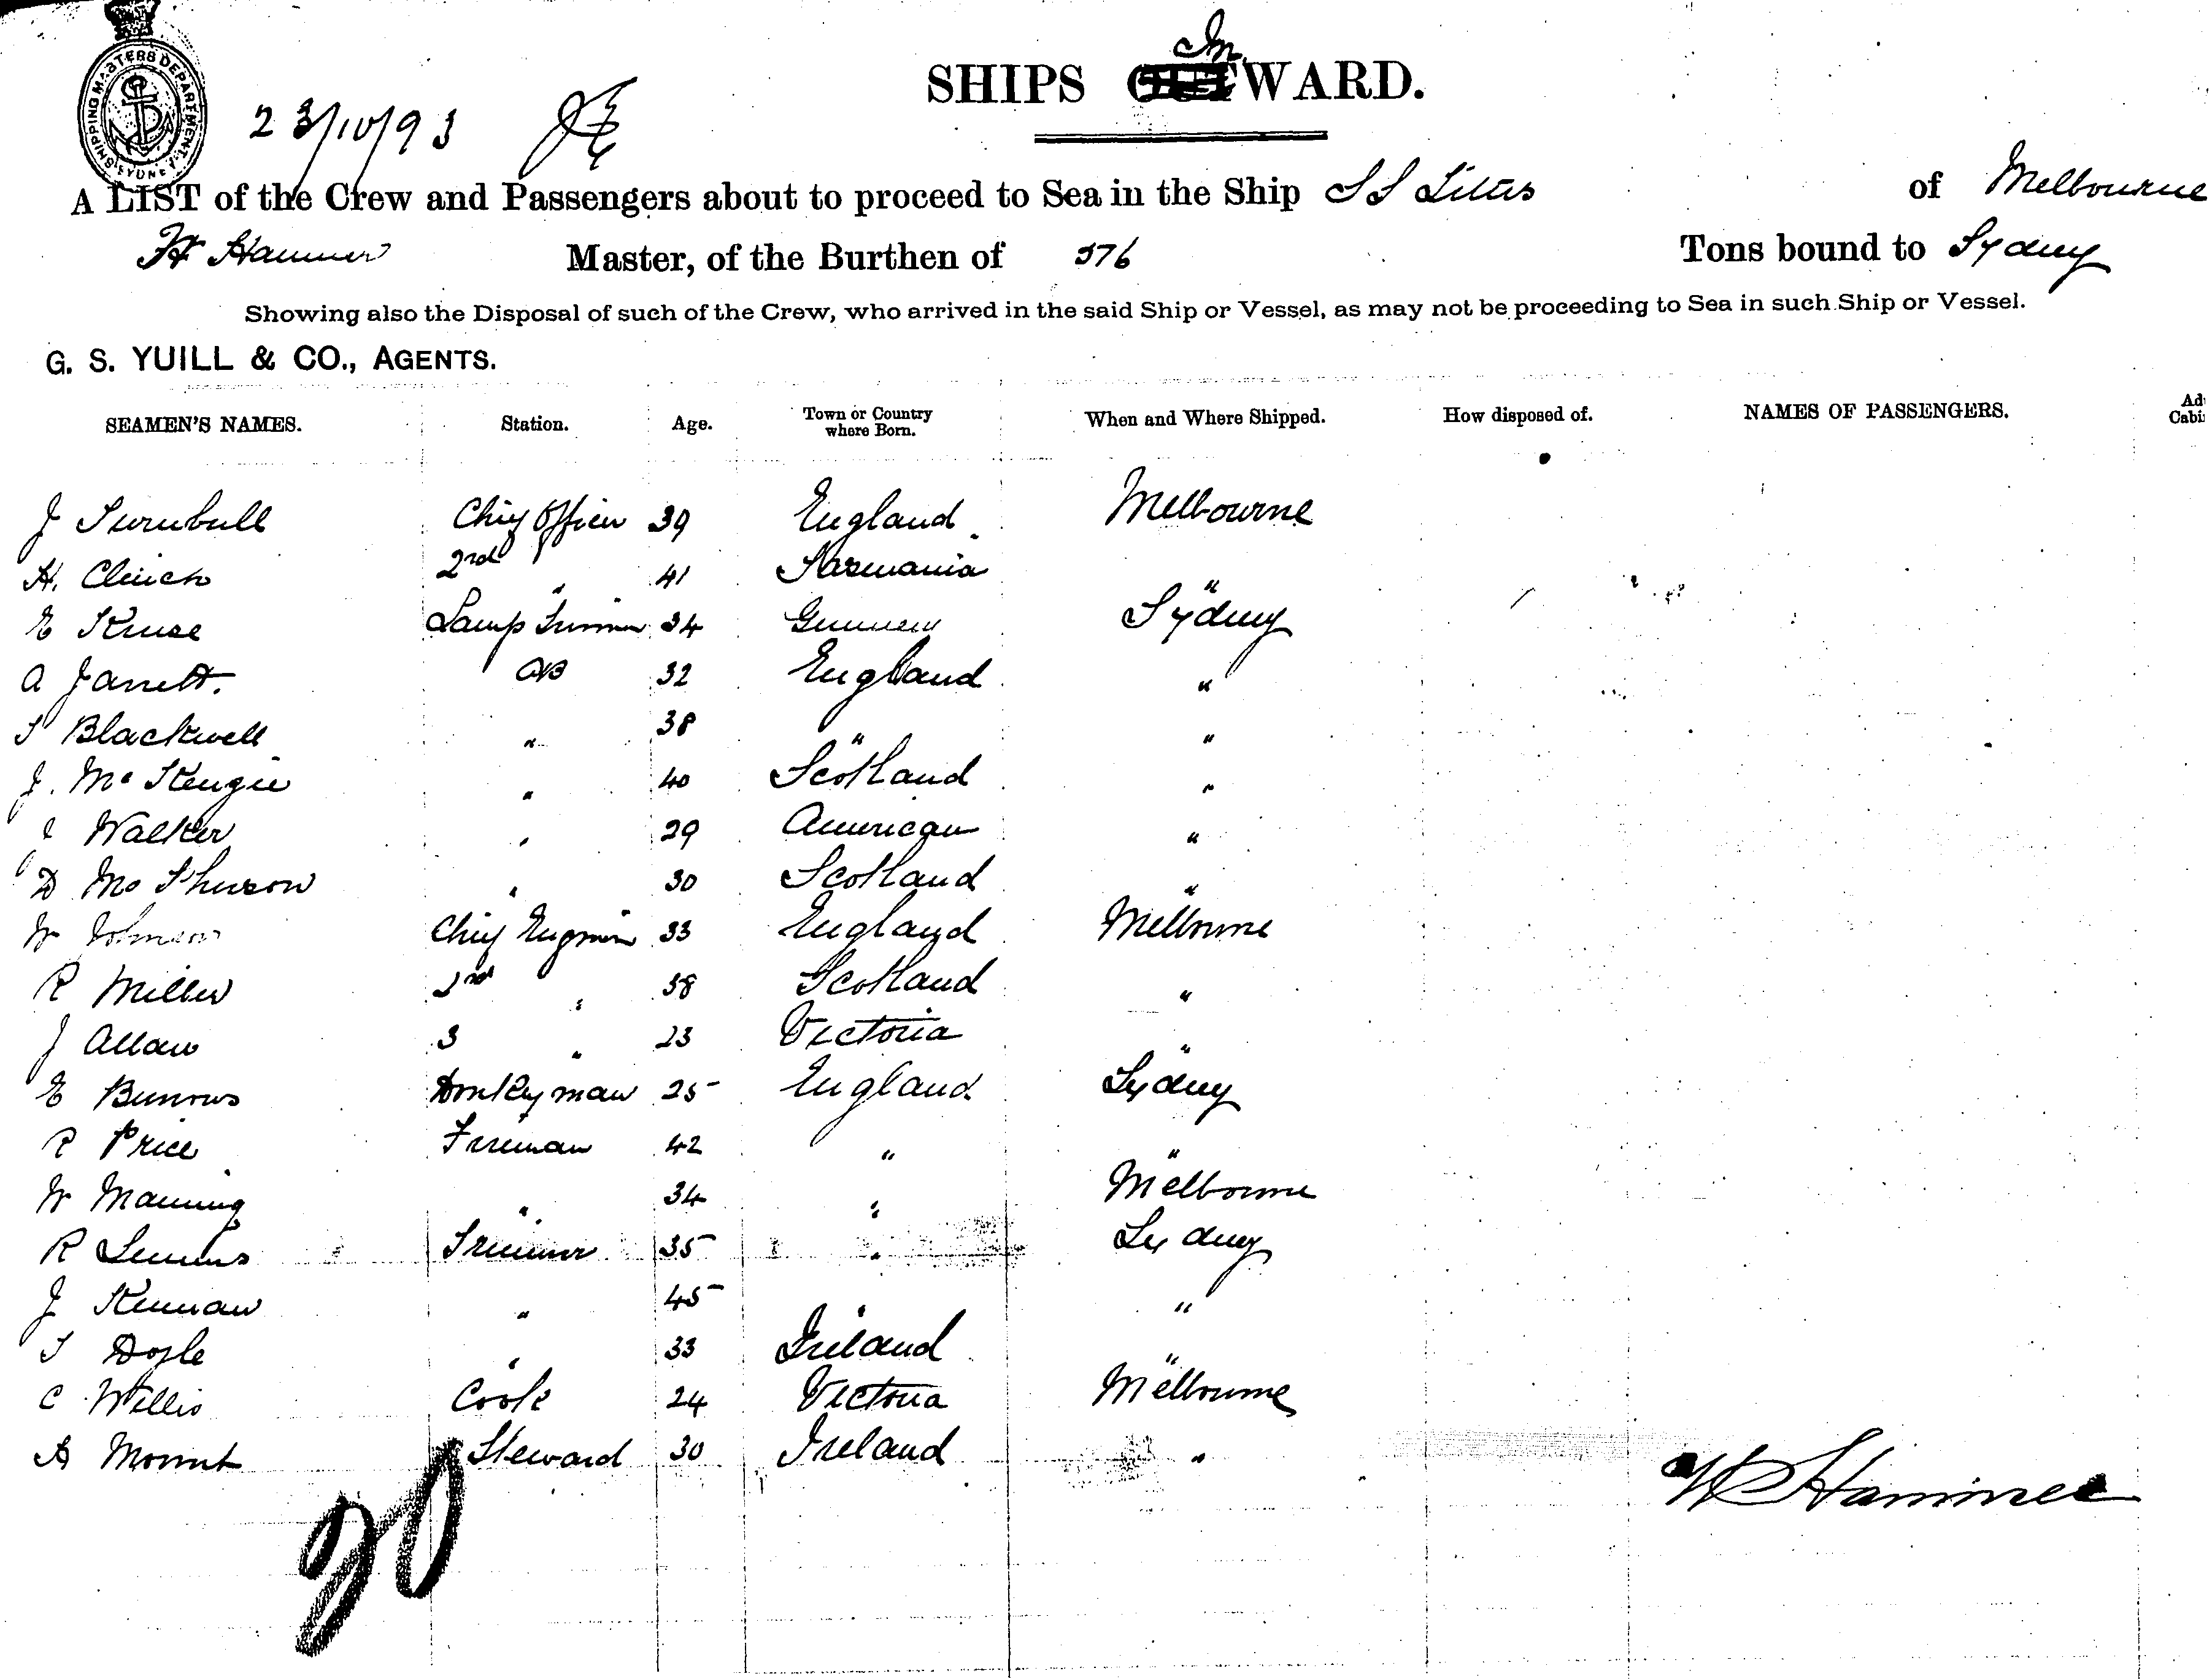 SHIPPING MASTERS DEPARTMENT. SYDNEY
23/10/93
SHIPS InWARD.
A LIST of the Crew and Passengers about to proceed to Sea in the Ship S S Titus of Melbourne
Master, of the Burthen of 576 Tons bound to Sydney
Showing also the Disposal of such of the Crew, who arrived in the said Ship or Vessel, as may not be proceeding to Sea in such Ship or Vessel.
G. S. YUILL & CO., AGENTS.
SEAMEN'S NAMES. Station. Age. Town or Country where Born. When and Where Shipped. How disposed of. NAMES OF PASSENGERS.
J Turnbull Chief Officer 39 England Melbourne
H. Clinch 2nd " 41 Tasmania "
E Kruse Lamp Trimmer 34 Sydney
A Jarrett. AB 32 England "
T Blackwell " 38 " "
J. McKenzie " 40 Scotland "
Walker " 29 American "
D McPherson " 30 Scotland "
W Johnson Chief Engineer 33 England Melbourne
R Miller 2nd " 38 Scotland "
J Allan 3 " 23 Victoria "
E Burrows Donkeyman 25 England Sydney
R Price Fireman 42 " "
W Manning " 34 " Melbourne
R Trimmer 35 " Sydney
J Keenan " 45 " "
T Doyle " 33 Ireland "
C Willis Cook 24 Victoria Melbourne
A Mount Steward 30 Ireland "
20